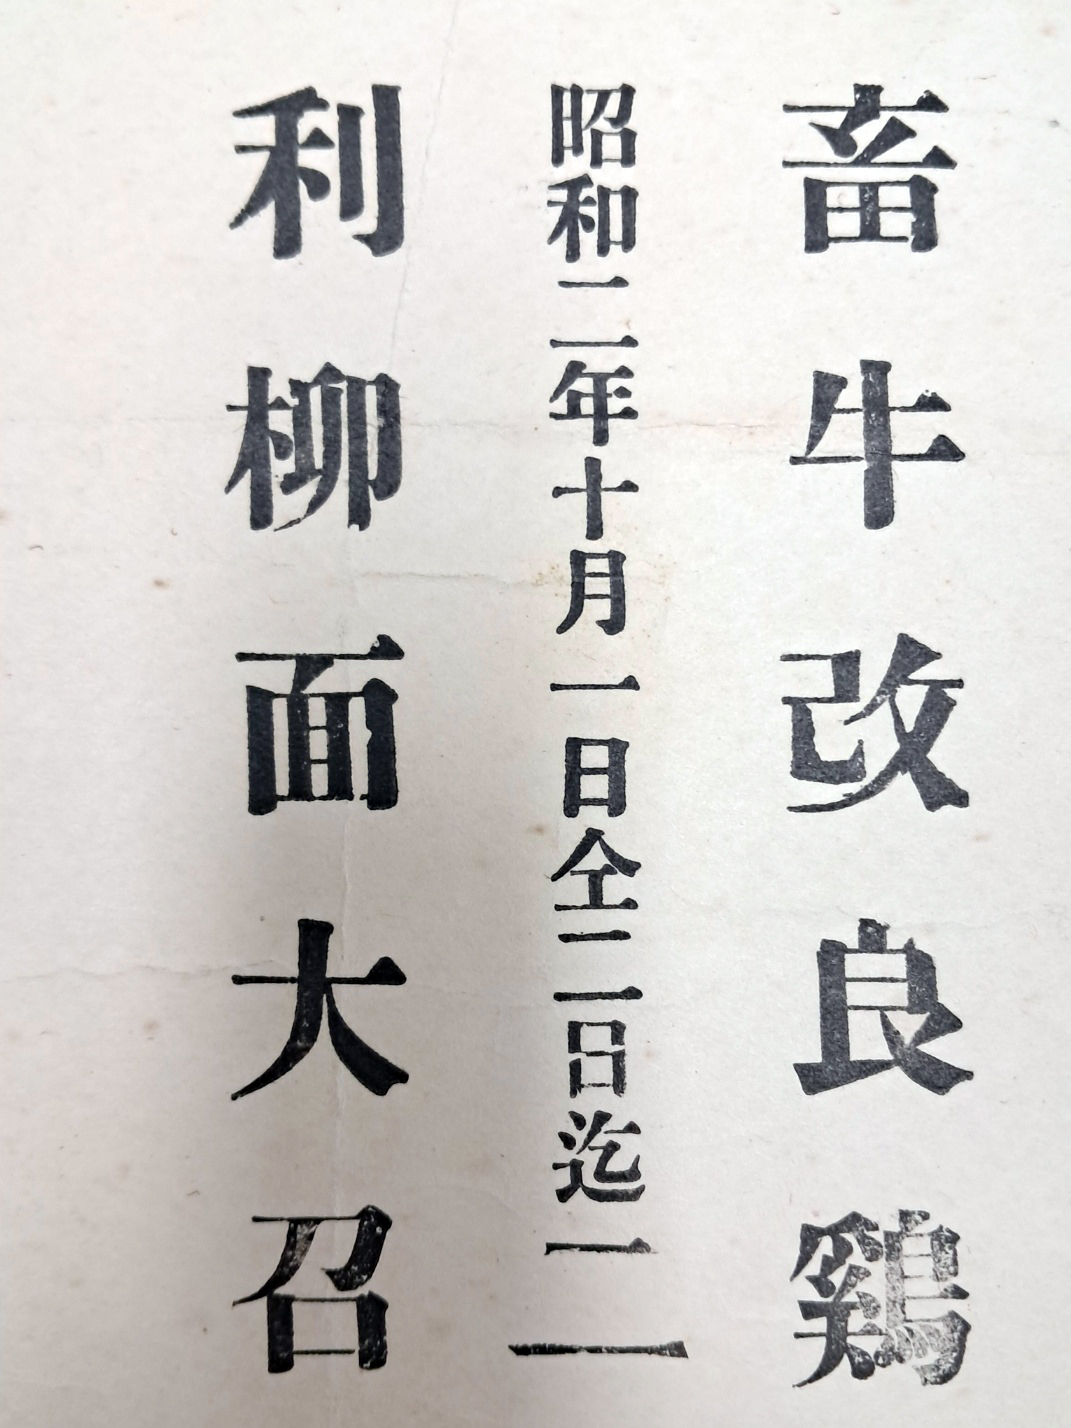 畜牛改良鷄
昭和二年十月一日仝二日迄一一
利柳面大召